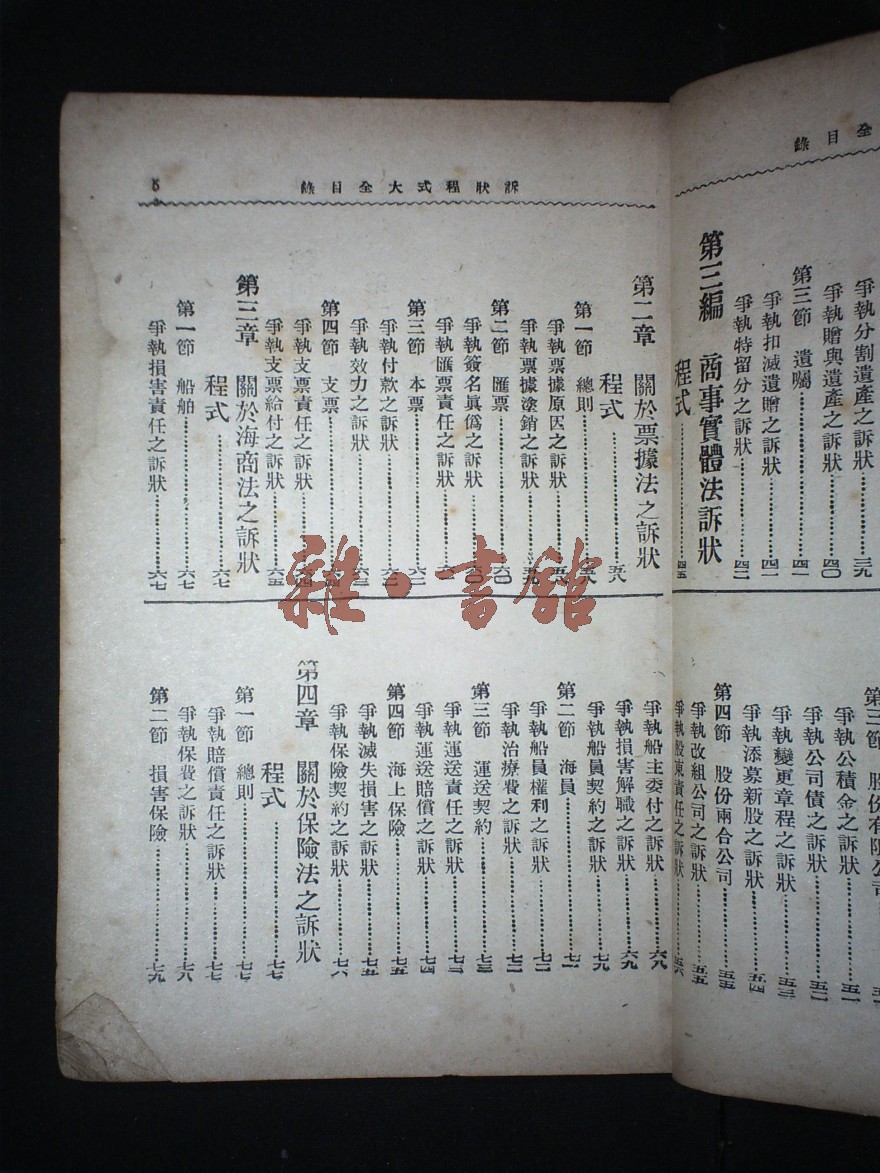 錄目全
爭執分割遺產之訴狀……三九
爭執贈與遺產之訴狀……四〇
第三節 遺囑……四一
爭執扣減遺贈之訴狀……四一
爭執特留分之訴狀……四二
第三編 商事實體法訴狀
程式……四五
第三節 股份有限公司
爭執公積金之訴狀……五一
爭執公司債之訴狀……五二
爭執變更章程之訴狀……五三
爭執添募新股之訴狀……五四
第四節 股份兩合公司……五五
爭執改組公司之訴狀……五五
爭執股東責任之訴狀……五六
錄目全大式程狀訴
第二章 關於票據法之訴狀
程式……五八
第一節 總則……五八
爭執票據原因之訴狀……五八
爭執票據塗銷之訴狀……五九
第二節 匯票……六〇
爭執簽名眞僞之訴狀……六〇
爭執匯票責任之訴狀
第三節 本票……六二
爭執付款之訴狀……六二
爭執效力之訴狀……六三
第四節 支票……六四
爭執支票責任之訴狀……六四
爭執支票給付之訴狀……六五
第三章 關於海商法之訴狀
程式……六七
第一節 船舶……六七
爭執損害責任之訴狀……六七
爭執船主委付之訴狀……六八
爭執損害解職之訴狀……六九
爭執船員契約之訴狀……七九
第二節 海員……七一
爭執船員權利之訴狀……七二
爭執治療費之訴狀……七二
第三節 運送契約……七三
爭執運送責任之訴狀……七三
爭執運送賠償之訴狀……七四
第四節 海上保險……七五
爭執滅失損害之訴狀……七五
爭執保險契約之訴狀……七六
第四章 關於保險法之訴狀
程式……七七
第一節 總則……七七
爭執賠償責任之訴狀……七七
爭執保費之訴狀……七八
第二節 損害保險……七九
雜·書館